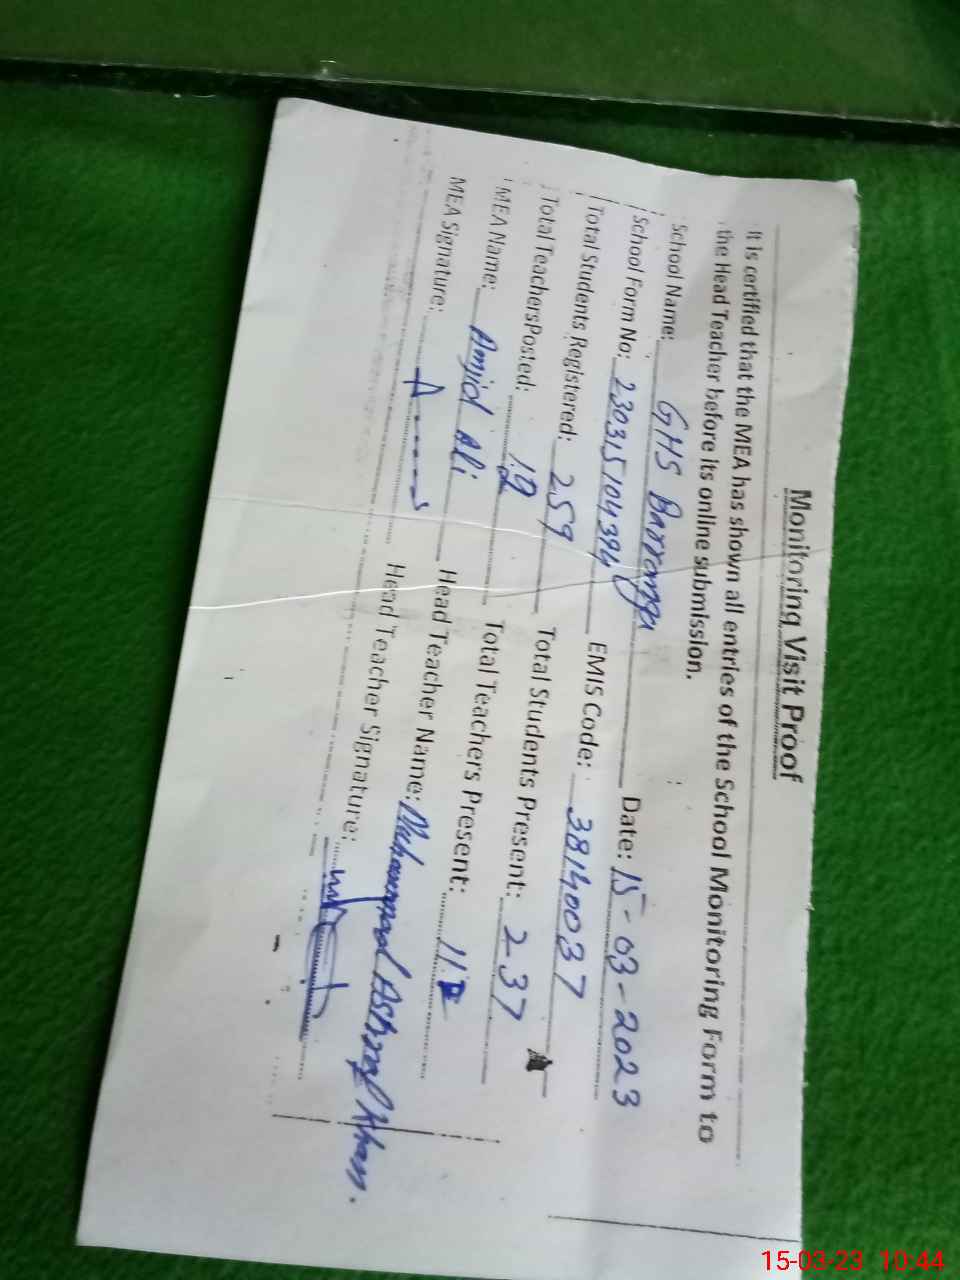 Monitoring Visit Proof
It is certified that the MEA has shown all entries of the School Monitoring Form to
the Head Teacher before its online submission.
School Name: GHS Date: 15-03-2023
School Form No: 230315104394 EMIS Code: 38140037
Total Students Registered: 259 Total Students Present: 237
Total TeachersPosted: 12 Total Teachers Present: 11
MEA Name: Amjid Ali Head Teacher Name: Muhammad Ashraf Khan.
MEA Signature: Head Teacher Signature:
15-03-23 10:44